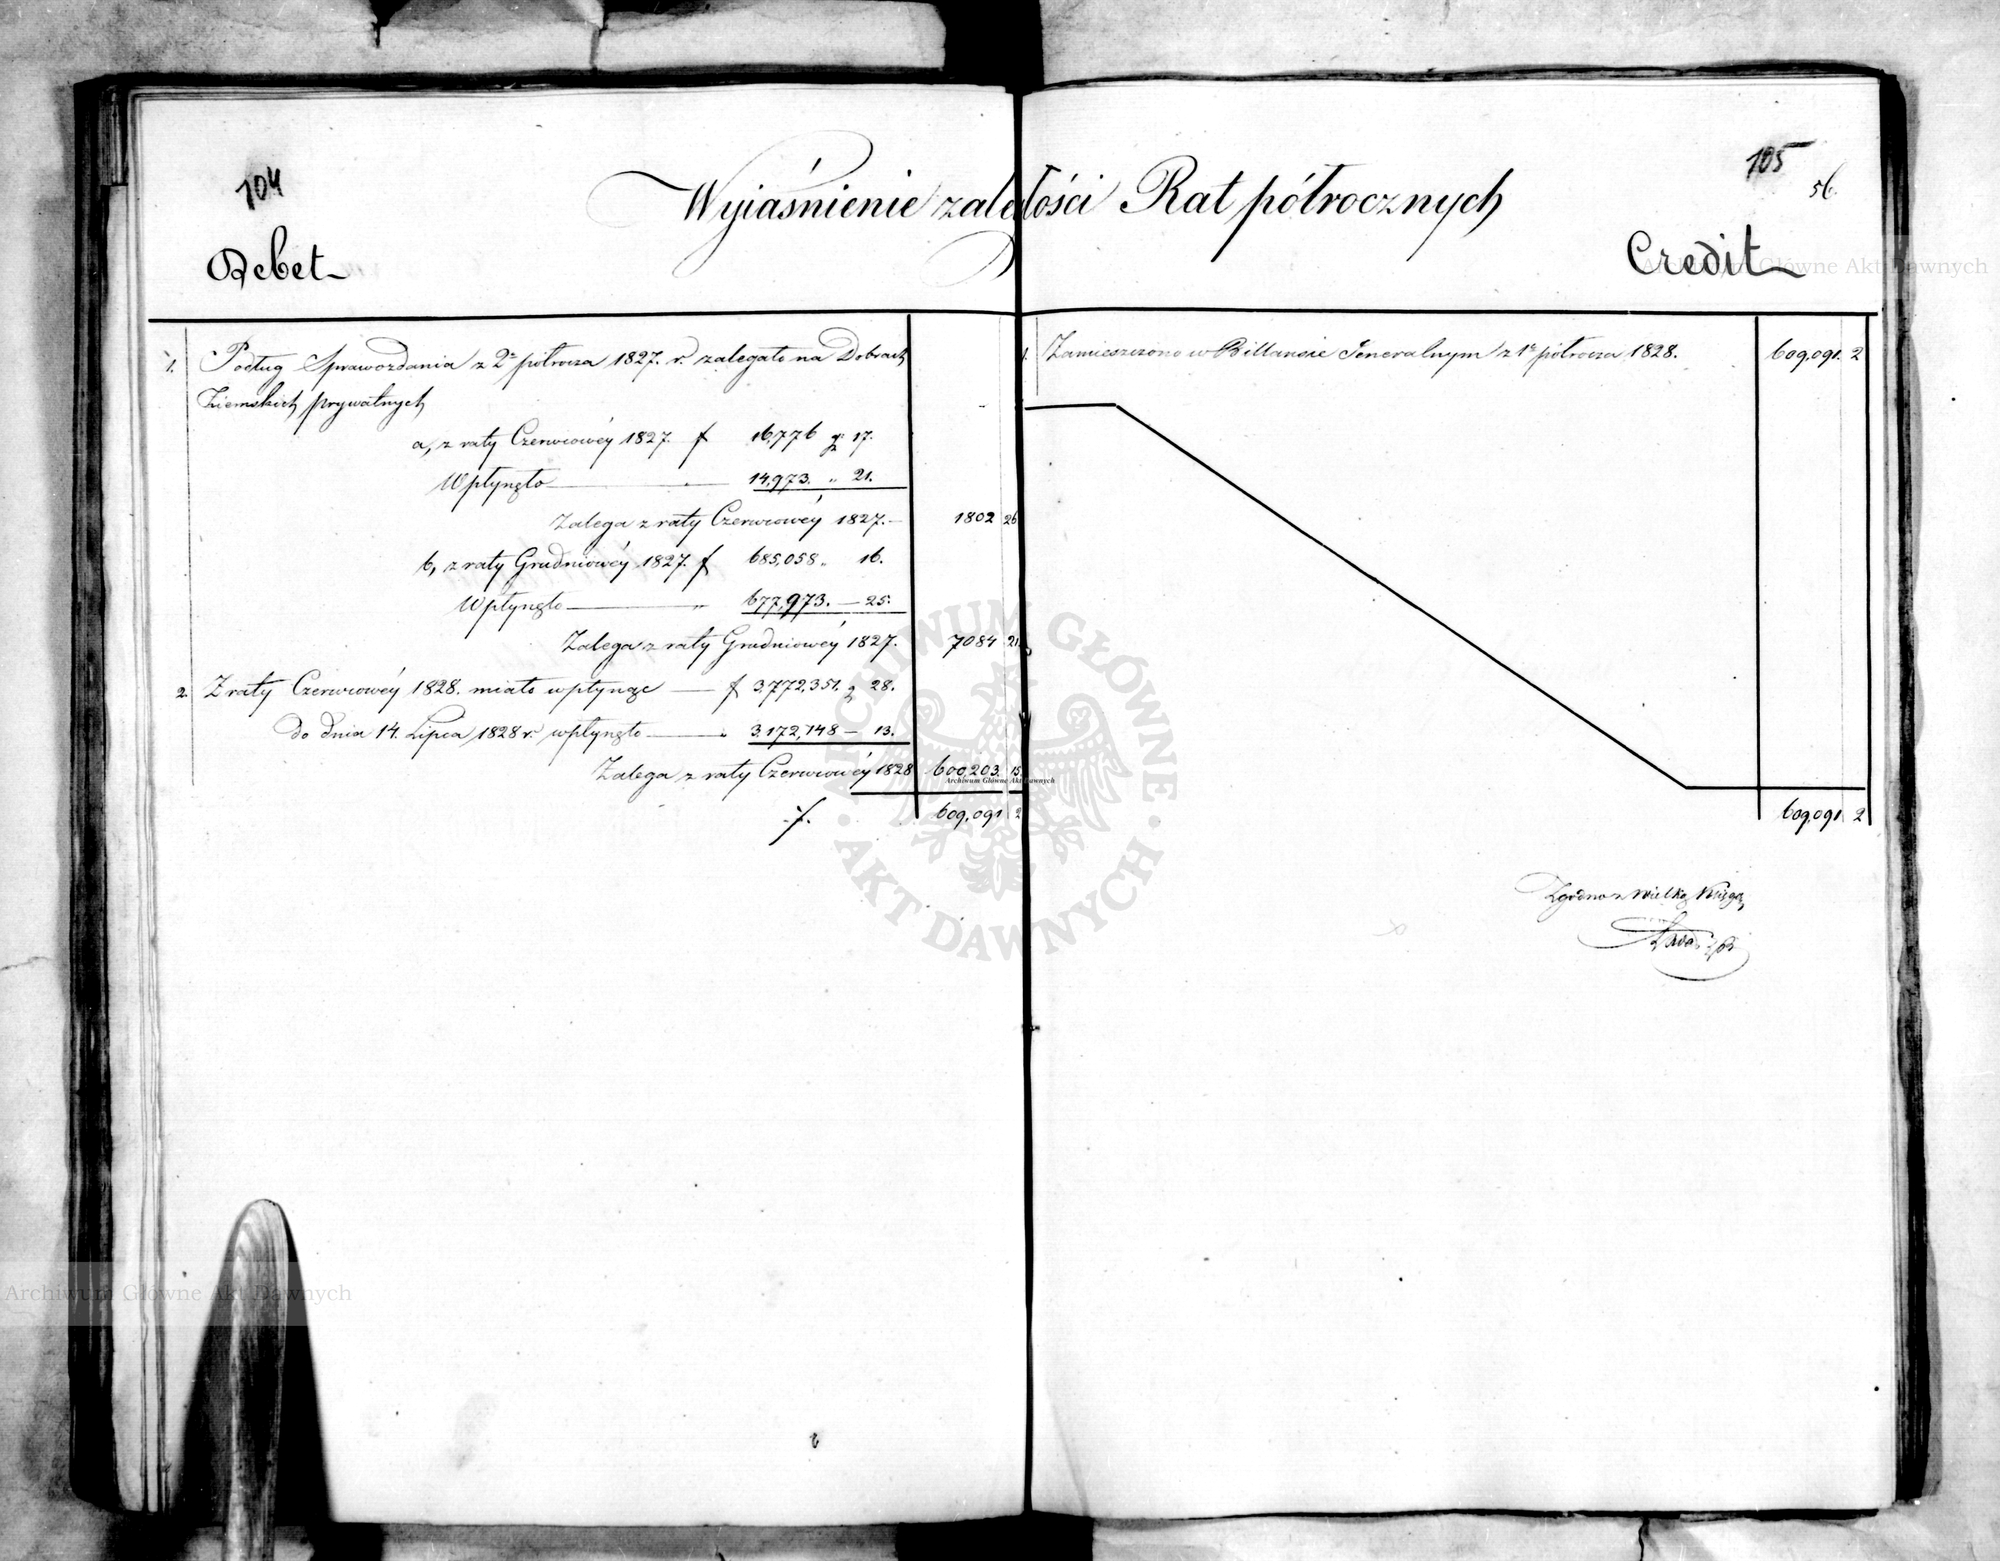 104
105
56.
Wyiaśnienie zaległości Rat półrocznych
Debet
Credit
1. Podług Sprawozdania z 2go półrocza 1827. r. zalegało na Dobrach
Ziemskich prywatnych
a, z raty Czerwcowéy 1827. f 16,776 gr 17.
Wpłynęło — " — 14,973. " 21.
Zalega z raty Czerwcowéy 1827. — 1802 26
b, z raty Grudniowéy 1827. f 685,058 " 16.
Wpłynęło — " 677,973. — 25.
Zalega z raty Grudniowéy 1827. 7084 21
2. Z raty Czerwcowéy 1828. miało wpłynąć — f 3,772,351. g 28.
do dnia 14. Lipca 1828 r. wpłynęło — " 3,172,148 — 13.
Zalega z raty Czerwcowéy 1828 600,203. 15
f. 609,091 2
1. Zamieszczono w Billansie Jeneralnym z 1go półrocza 1828. 609,091. 2
609,091 2
Zgodno z Wielką Księgą
Archiwum Główne Akt Dawnych
Archiwum Główne Akt Dawnych
Archiwum Główne Akt Dawnych
ARCHIWUM GŁÓWNE · AKT DAWNYCH ·